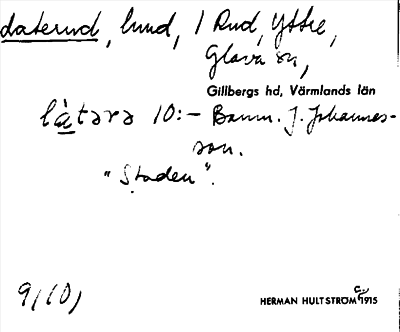 daterud, lund, 1 Rud, Yttre,
Glava sn,
Gillbergs hd, Värmlands län
låtərə 10:– Barum. J. Johannes-
son.
"Staden".
9/10,
HERMAN HULTSTRÖM 1915